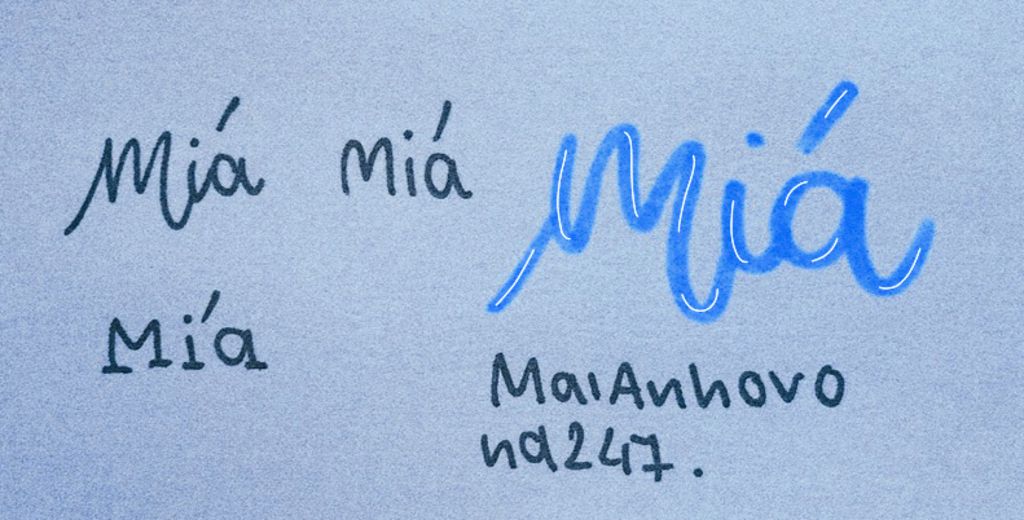 Miá miá Miá
Mía
MaiAnhovo
na247.